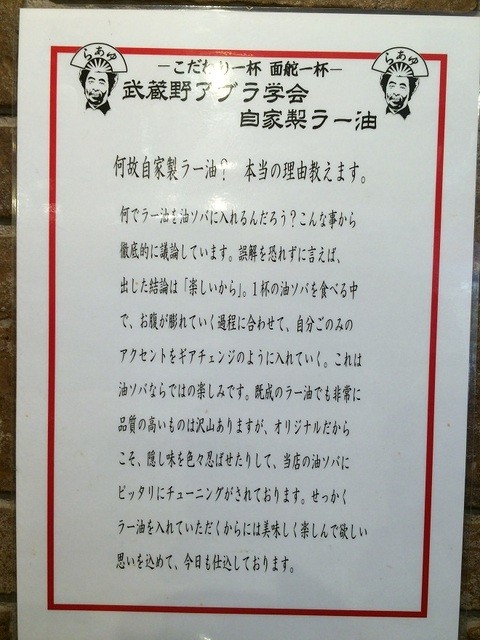 らあゆ
らあゆ
―こだわり一杯 面舵一杯―
武蔵野アブラ学会
自家製ラー油
何故自家製ラー油? 本当の理由教えます。
何でラー油を油ソバに入れるんだろう?こんな事から
徹底的に議論しています。誤解を恐れずに言えば、
出した結論は「楽しいから」。1杯の油ソバを食べる中
で、お腹が膨れていく過程に合わせて、自分ごのみの
アクセントをギアチェンジのように入れていく。これは
油ソバならではの楽しみです。既成のラー油でも非常に
品質の高いものは沢山ありますが、オリジナルだから
こそ、隠し味を色々忍ばせたりして、当店の油ソバに
ピッタリにチューニングがされております。せっかく
ラー油を入れていただくからには美味しく楽しんで欲しい
思いを込めて、今日も仕込しております。